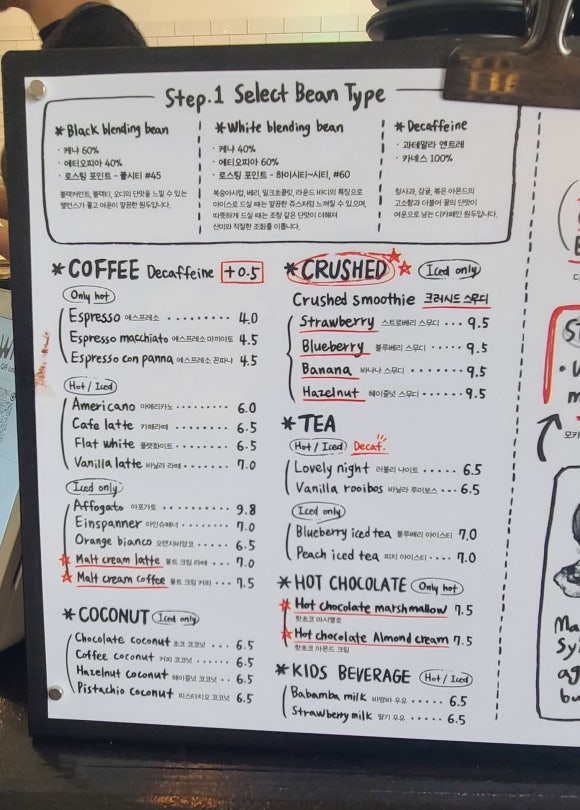 Step.1 Select Bean Type
*Black blending bean
· 케냐 60%
· 에티오피아 40%
· 로스팅 포인트 - 풀시티 #45
블랙커런트, 블랙티, 오디의 단맛을 느낄 수 있는
밸런스가 좋고 여운이 깔끔한 원두입니다.
*White blending bean
· 케냐 40%
· 에티오피아 60%
· 로스팅 포인트 - 하이시티~시티, #60
복숭아시럽, 베리, 밀크초콜릿, 라운드 바디의 특징으로
아이스로 드실 때는 깔끔한 쥬스처럼 느껴질 수 있으며,
따뜻하게 드실 때는 조청 같은 단맛이 더해져
산미와 적절한 조화를 이룹니다.
*Decaffeine
· 과테말라 엔트레
· 카네스 100%
청사과, 감귤, 볶은 아몬드의
고소함과 더불어 꿀의 단맛이
여운으로 남는 디카페인 원두입니다.
*COFFEE Decaffeine +0.5
Only hot
Espresso 에스프레소 ········· 4.0
Espresso macchiato 에스프레소 마끼아또 4.5
Espresso con panna 에스프레소 콘파냐 4.5
Hot/Iced
Americano 아메리카노 ········ 6.0
Cafe latte 카페라떼 ········· 6.5
Flat white 플랫화이트 ······· 6.5
Vanilla latte 바닐라 라떼 ···· 7.0
Iced only
Affogato 아포가토 ········· 9.8
Einspanner 아인슈페너 ······ 7.0
Orange bianco 오렌지비앙코 ···· 6.5
Malt cream latte 몰트 크림 라떼 ··· 7.0
Malt cream coffee 몰트 크림 커피 ··· 7.5
*COCONUT Iced only
Chocolate coconut 초코 코코넛 ···· 6.5
Coffee coconut 커피 코코넛 ······ 6.5
Hazelnut coconut 헤이즐넛 코코넛 ·· 6.5
Pistachio coconut 피스타치오 코코넛 6.5
*CRUSHED Iced only
Crushed smoothie 크러시드 스무디
Strawberry 스트로베리 스무디 ··· 9.5
Blueberry 블루베리 스무디 ····· 9.5
Banana 바나나 스무디 ···· 9.5
Hazelnut 헤이즐넛 스무디 ····· 9.5
*TEA
Hot/Iced Decaf.
Lovely night 러블리 나이트 ····· 6.5
Vanilla rooibos 바닐라 루이보스 ··· 6.5
Iced only
Blueberry iced tea 블루베리 아이스티 7.0
Peach iced tea 피치 아이스티 ···· 7.0
*HOT CHOCOLATE Only hot
Hot chocolate marshmallow 7.5
핫초코 마시멜로
Hot chocolate Almond cream 7.5
핫초코 아몬드 크림
*KIDS BEVERAGE Hot/Iced
Babamba milk 바밤바 우유 ····· 6.5
Strawberry milk 딸기 우유 ···· 6.5